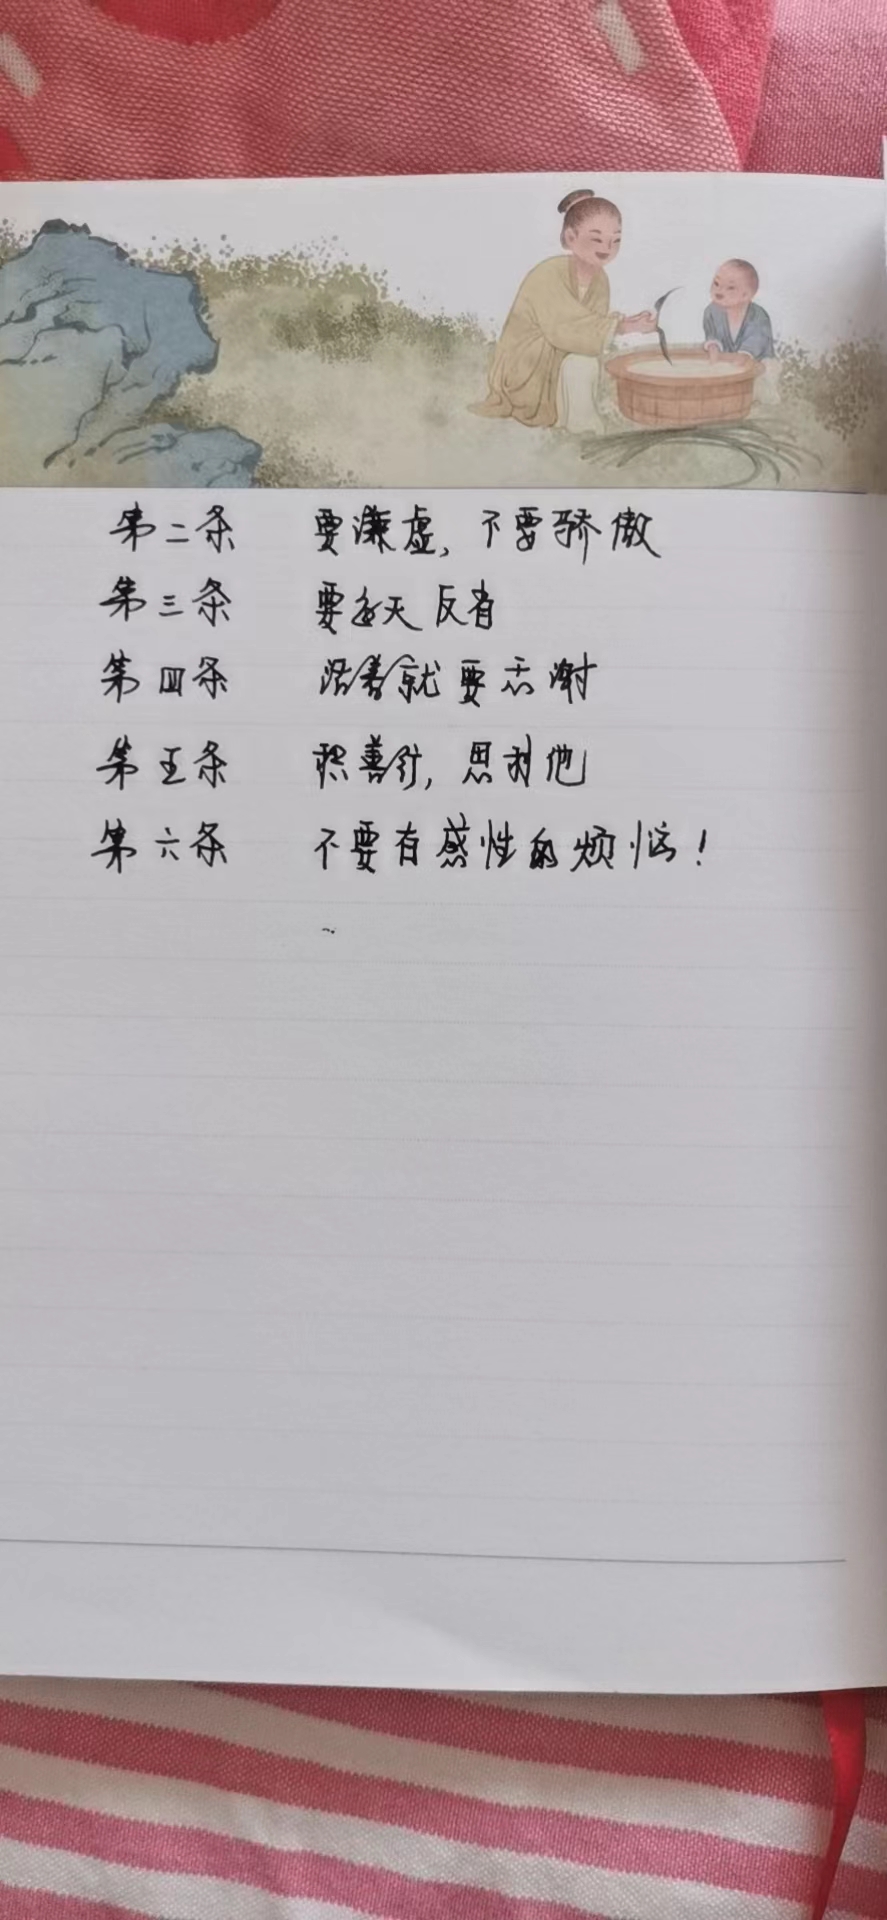 第二条 要谦虚,不要骄傲
第三条 要每天反省
第四条 活着就要感谢
第五条 积善行,思利他
第六条 不要有感性的烦恼!